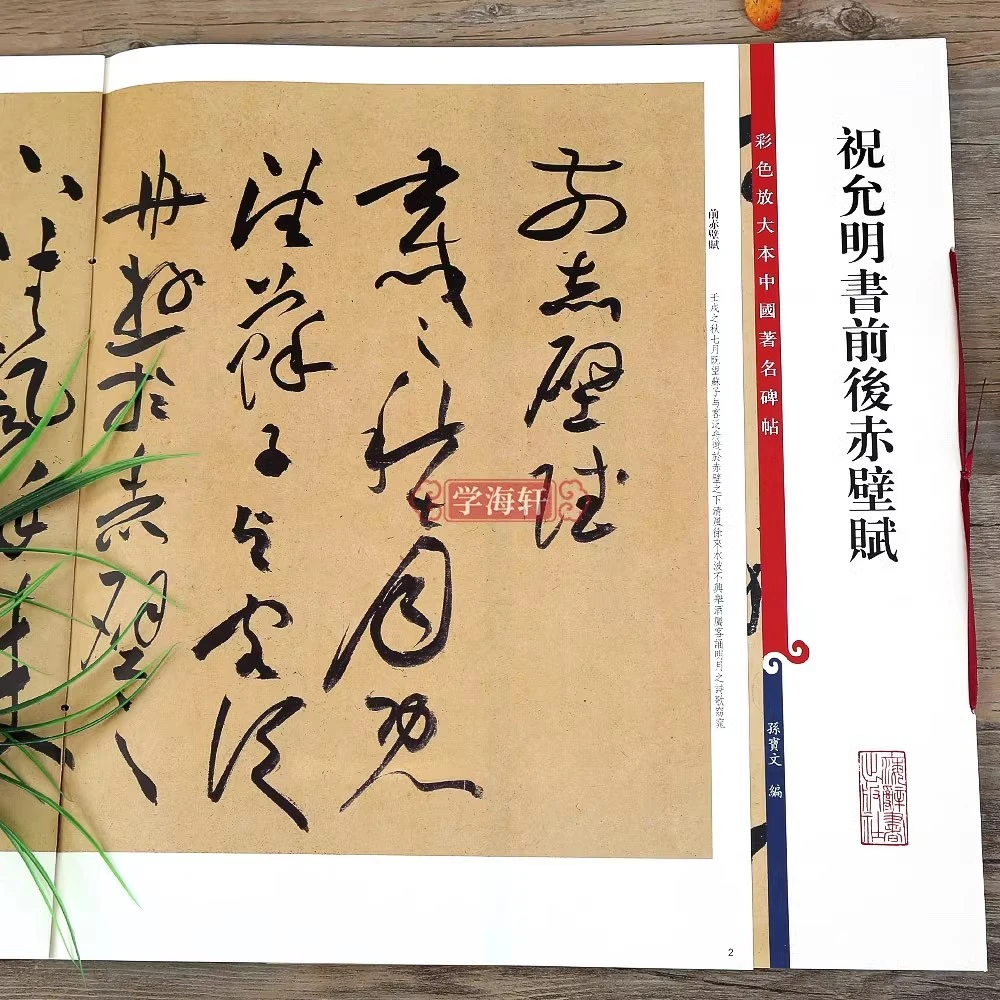 祝允明書前後赤壁賦
彩色放大本中國著名碑帖
孫寶文 編
上海辭書出版社
前赤壁賦
壬戌之秋七月既望蘇子与客泛舟遊於赤壁之下清風徐來水波不興舉酒屬客誦明月之詩歌窈窕
前赤壁賦
壬戌之秋七月既
望蘇子与客泛
舟遊於赤壁之
下清風徐來
学海轩
2